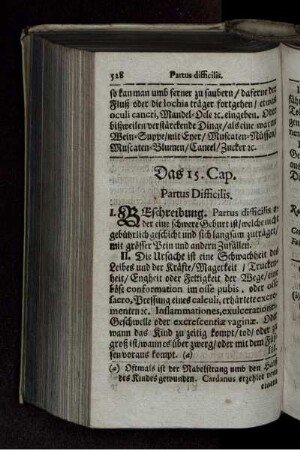 528 Partus difficilis.
so kan man umb ferner zu saubern / daferne der
Fluß oder die lochia träger fortgehen / etwas
oculi cancri, Mandel-Oele ꝛc. eingeben. Oder
bißweilen verstärckende Dinge / als eine warme
Wein-Suppe / mit Eyer / Muscaten-Nüssen /
Muscaten-Blumen / Caneel / Zucker ꝛc.
Das 15. Cap.
Partus Difficilis.
I. BEschreibung. Partus difficilis
der eine schwere Geburt ist / welche nicht
gebührlich geschicht und sich langsam zuträget /
mit grösser Pein und andern Zufällen.
II. Die Ursache ist eine Schwachheit des
Leibes und der Kräfte / Magerkeit / Trucken-
heit / Engheit oder Fettigkeit der Wege / eine
böse conformation im osse pubis, oder osse
sacro, Pressung eines calculi, erhärtete excre-
menten ꝛc. Inflammationes, exulcerationes,
Geschwelle oder excrescentiæ vaginæ. Oder
wann das Kind zu zeitig kompt / tod / oder zu
groß ist / wann es über zwerg / oder mit dem Füs-
sen voraus kompt. (a) III.
(a) Oftmals ist der Nabelstrang umb den Halß
des Kindes gewunden. Cardanus erzehlet von
einem